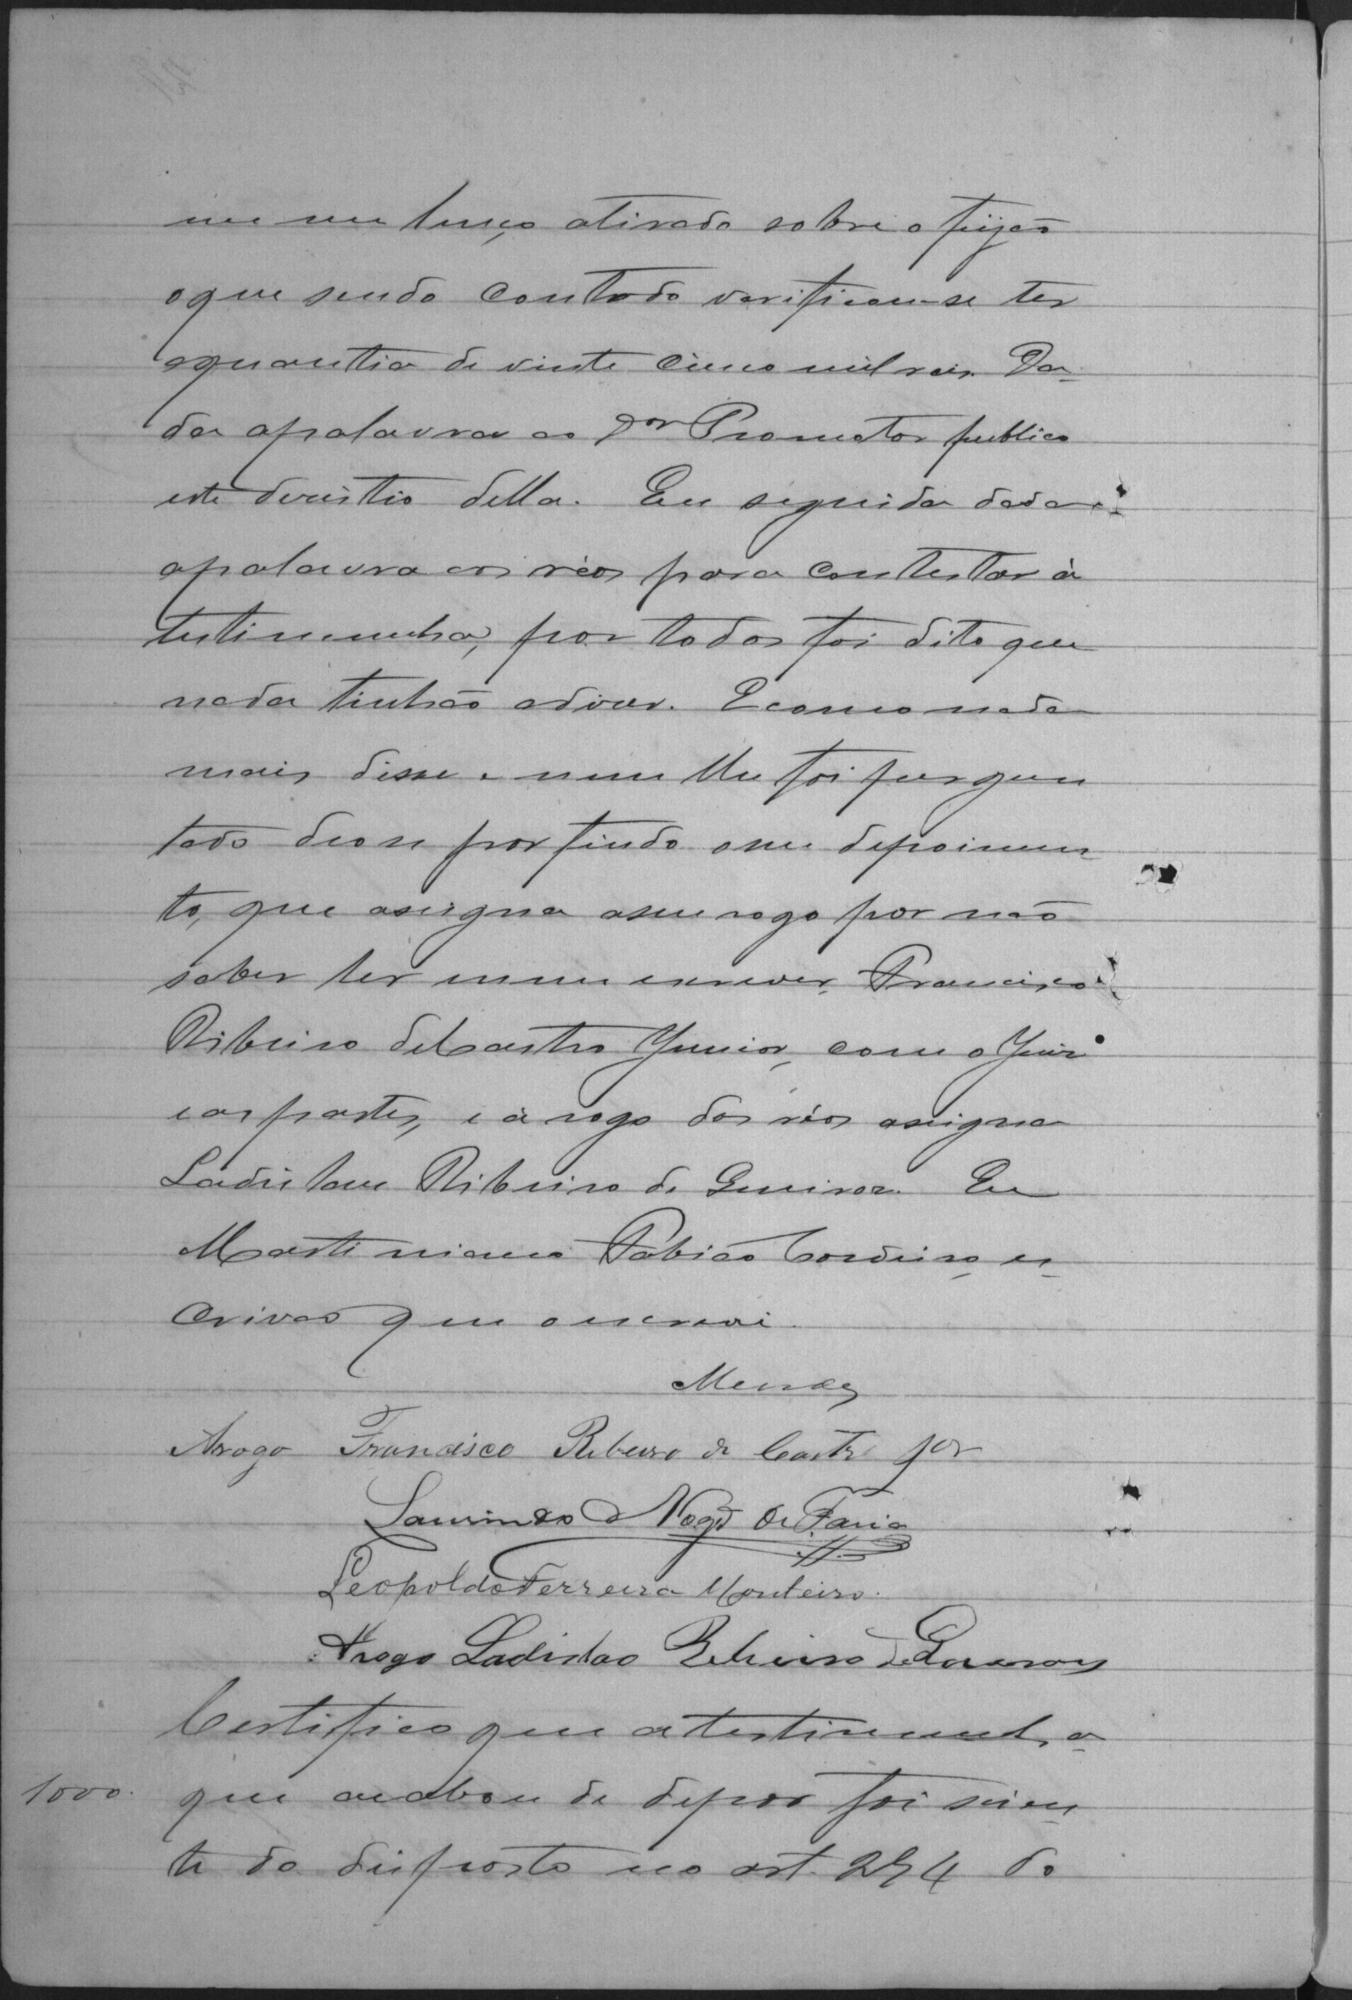 um um lenço atirado sobre o feijão
o que sendo contado verificou-se ter
aquantia de vinte cinco mil reis. Da-
da apalavra ao Dor Promotor publico
este desistio della. Em seguida dada
apalavra aos réos para contestar à
testimunha, por todos foi dito que
nada tinhão adizer. E como nada
mais disse e nem lhe foi pergun
tado deose por findo oseu depoimen
to, que assigna aseu rogo por não
saber ler nem escrever, Francisco
Ribeiro de Castro Junior, com o Juiz
eas partes, e à rogo dos réos assigna
Ladislau Ribeiro de Queiroz. Eu
Martiniano Fabião Cordeiro, es-
crivão que o escrevi.
Mendes
Arogo Francisco Ribeiro de Castro Jor
Laurindo Nogra de Faria
Leopoldo Ferreira Monteiro.
Arogo Ladislao Ribeiro de
Certifico que a testimunha
1000. que acabou de depôr foi scien
te do disposto no art. 294 do